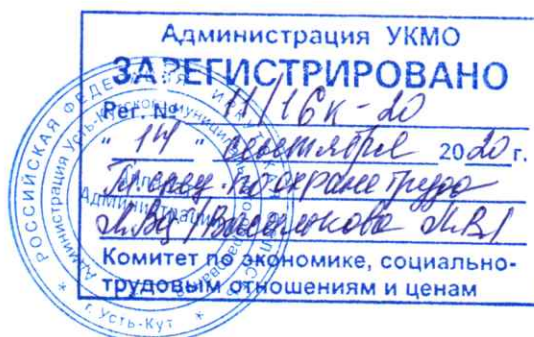 Администрация УКМО
ЗАРЕГИСТРИРОВАНО
Рег. № 11/16к-20
" 14 " сентября 2020 г.
Гл. спец. по охране труда
Василькова М.В.
Комитет по экономике, социально-
трудовым отношениям и ценам
РОССИЙСКАЯ ФЕДЕРАЦИЯ
Администрация Усть-Кутского муниципального образования
Администрация
г. Усть-Кут